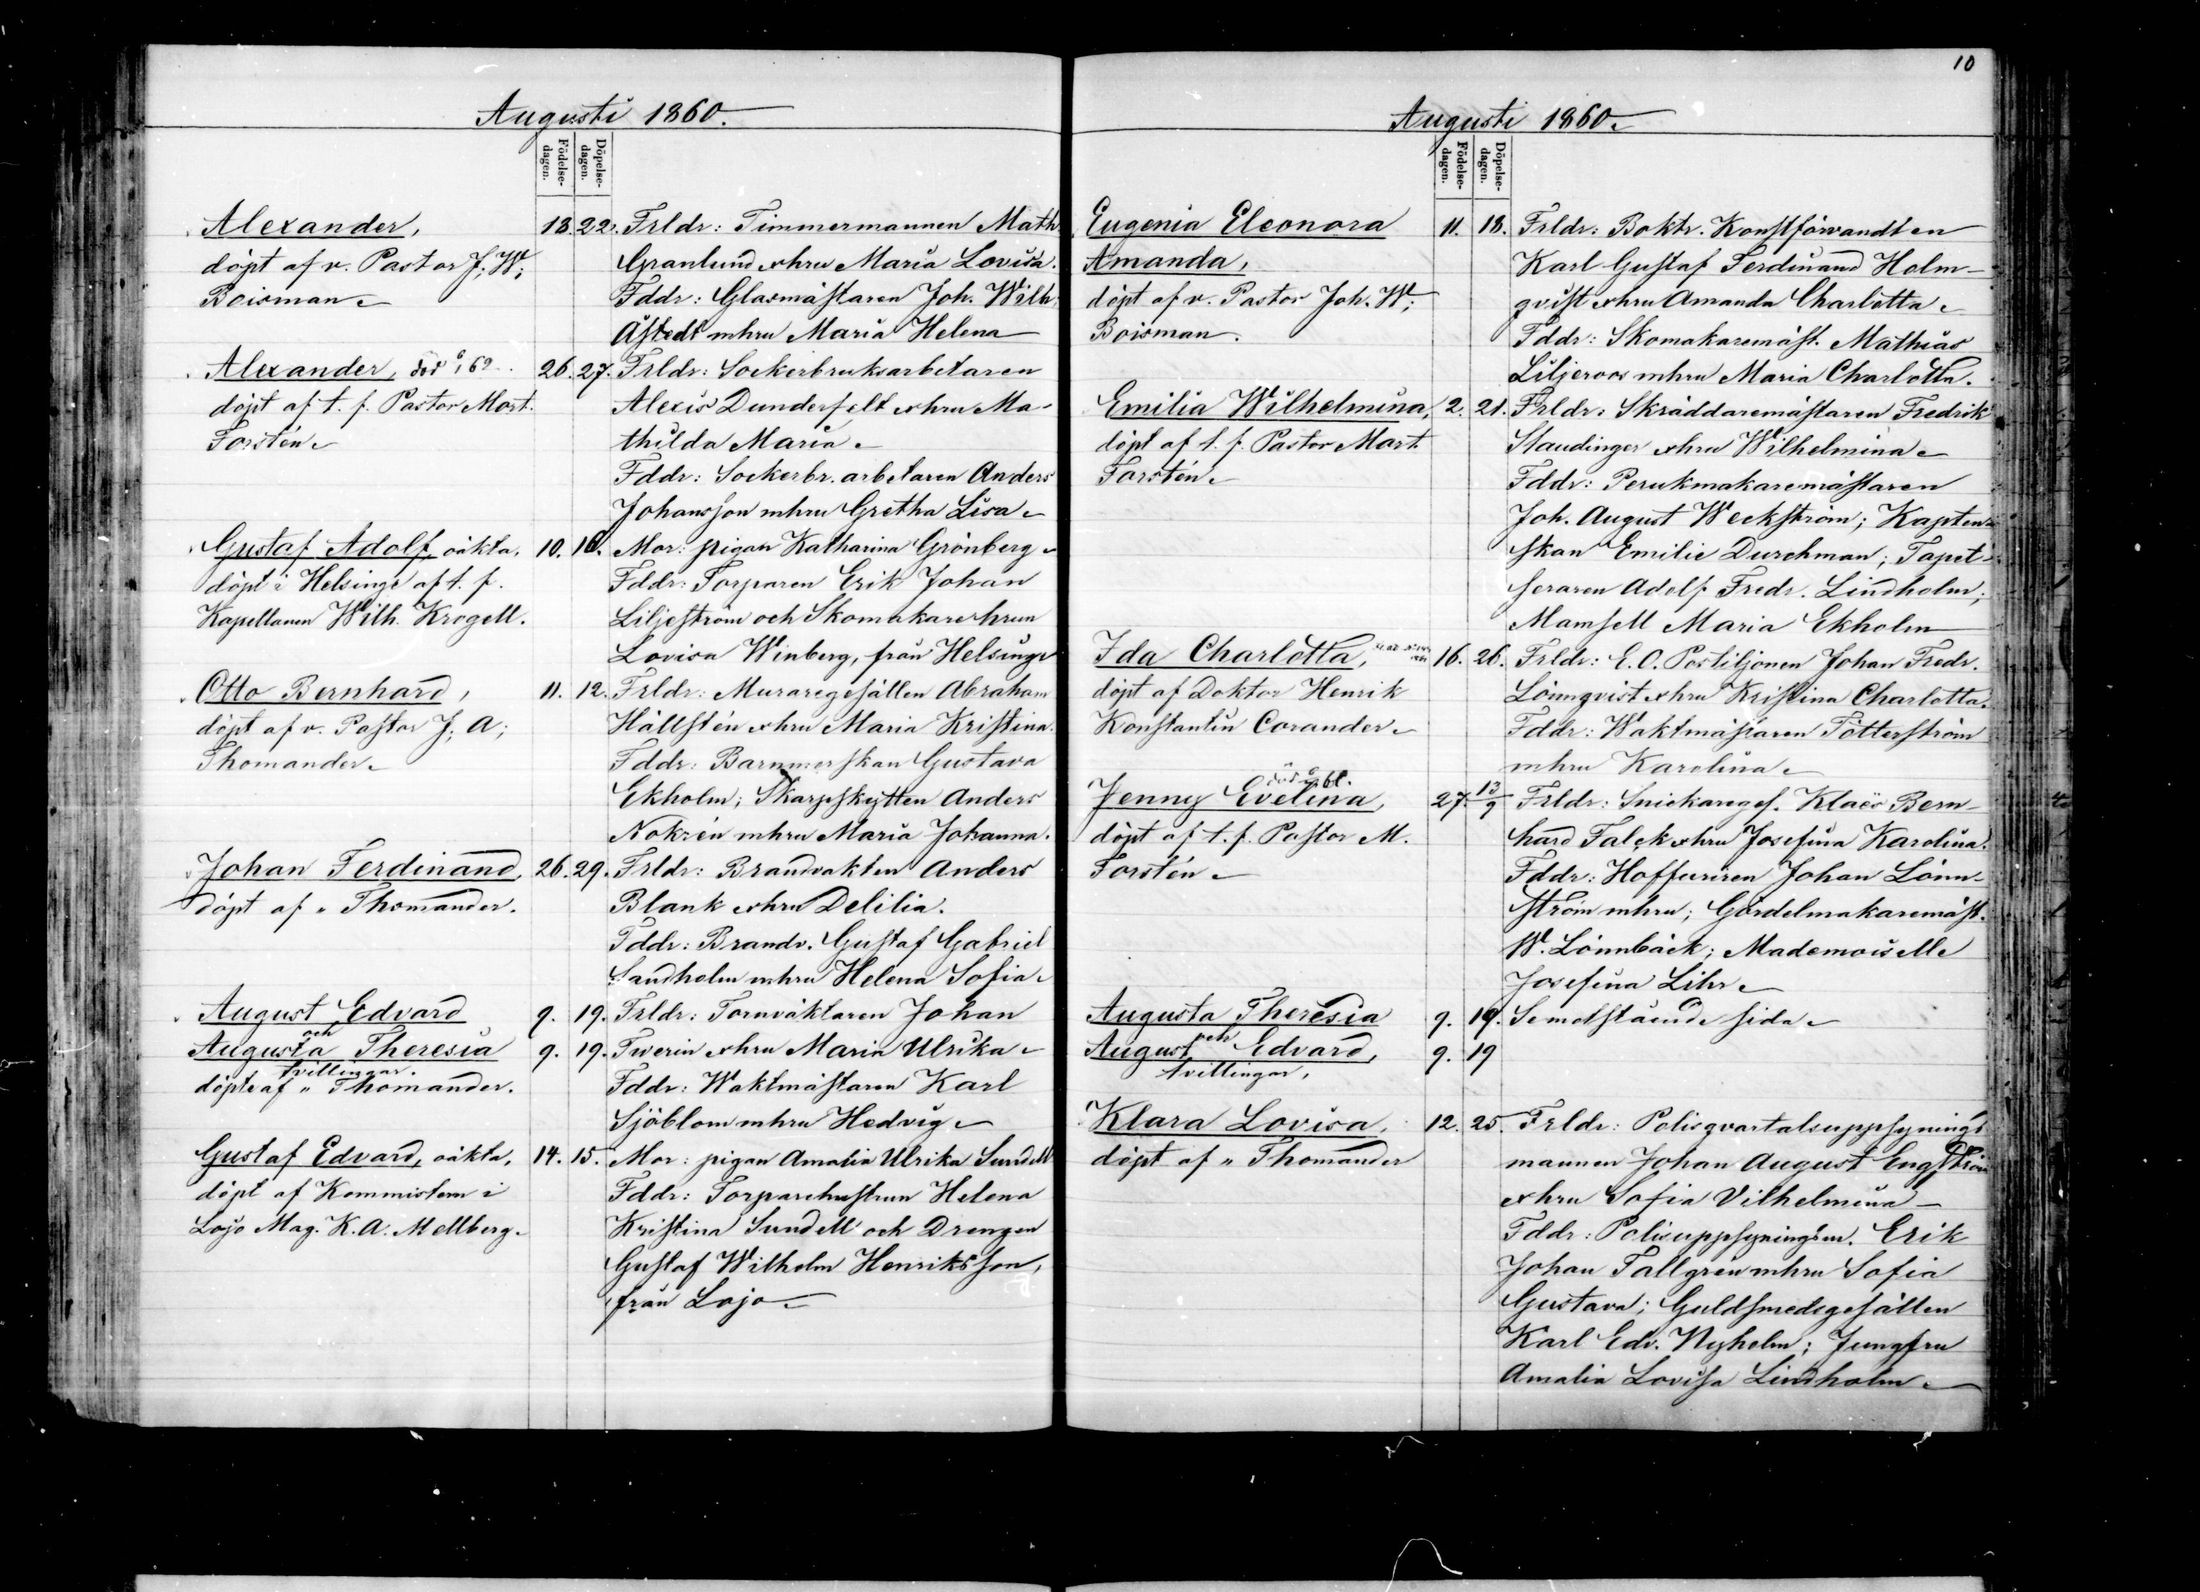 10
Augusti 1860.
Födelse-
dagen.
Döpelse-
dagen.
Alexander, 18. 22. Frldr: Timmermannen Math.
döpt af v. Pastor J. W; Granlund o hru Maria Lovisa.
Boisman. Fddr: Glasmästaren Joh. Wilh.
Åstedt m hru Maria Helena
Alexander, död 62. 26. 27. Frldr: Sockerbruksarbetaren
döpt af t. f. Pastor Mart. Alexis Dunderfelt o hru Ma-
Forstén. thilda Maria.
Fddr: Sockerbr. arbetaren Anders
Johansson m hru Gretha Lisa.
Gustaf Adolf, oäkta, 10. 16. Mor: pigan Katharina Grönberg.
döpt i Helsinge af t. f. Fddr: Torparen Erik Johan
Kapellanen Wilh. Krogell. Liljeström och Skomakarehrun
Lovisa Winberg, från Helsinge
Otto Bernhard, 11. 12. Frldr: Muraregesällen Abraham
döpt af v. Pastor J. A; Hällstén o hru Maria Kristina.
Thomander. Fddr: Barnmorskan Gustava
Ekholm; Skarpskytten Anders
Nokrén m hru Maria Johanna.
Johan Ferdinand, 26. 29. Frldr: Brandvakten Anders
döpt af " Thomander. Blank o hru Delilia.
Fddr: Brandv. Gustaf Gabriel
Sandholm m hru Helena Sofia.
August Edvard 9. 19. Frldr: Tornväktaren Johan
och
Augusta Theresia 9. 19. Twerin o hru Maria Ulrika.
tvillingar.
döpte af " Thomander. Fddr: Waktmästaren Karl
Sjöblom m hru Hedvig.
Gustaf Edvard, oäkta, 14. 15. Mor: pigan Amalia Ulrika Sundell
döpt af Kommistern i Fddr: Torparehustrun Helena
Lojo Mag. K. A. Mellberg. Kristina Sundell och Drengen
Gustaf Wilhelm Henriksson,
från Lojo.
Augusti 1860.
Födelse-
dagen.
Döpelse-
dagen.
Eugenia Eleonora 11. 18. Frldr: Boktr. Konstförvandten
Amanda, Karl Gustaf Ferdinand Holm-
döpt af v. Pastor Joh. W; qvist o hru Amanda Charlotta.
Boisman. Fddr: Skomakaremäst. Mathias
Liljeroos m hru Maria Charlotta.
Emilia Wilhelmina, 2. 21. Frldr: Skräddaremästaren Fredrik
döpt af t. f. Pastor Mart. Staudinger o hru Wilhelmina.
Forstén. Fddr: Perukmakaremästaren
Joh. August Weckström; Kapten-
skan Emilie Durchman; Tapet-
seraren Adolf Fredr. Lindholm;
Mamsell Maria Ekholm
Ida Charlotta, 16. 26. Frldr: E. O. Postiljonen Johan Fredr.
döpt af Doktor Henrik Lönnqvist o hru Kristina Charlotta.
Konstantin Corander. Fddr: Waktmästaren Tötterström
m hru Karolina.
död 61.
Jenny Evelina, 27. 13/9 Frldr: Snickareges. Klaës Bern-
döpt af t. f. Pastor M. hard Falck o hru Josefina Karolina.
Forstén. Fddr: Hoffuriren Johan Lönn-
ström m hru; Gördelmakaremäst.
W. Lönnbäck; Mademoiselle
Josefina Lihr.
Augusta Theresia 9. 19. Se motstående sida.
och
August Edvard, 9. 19
tvillingar,
Klara Lovisa, 12. 25. Frldr: Polisqvartalsuppsynings
döpt af " Thomander mannen Johan August Engström
o hru Sofia Vilhelmina
Fddr: Polisuppsyningsm. Erik
Johan Tallgrén m hru Sofia
Gustava; Guldsmedsgesällen
Karl Edv. Nyholm; Jungfru
Amalia Lovisa Lindholm.